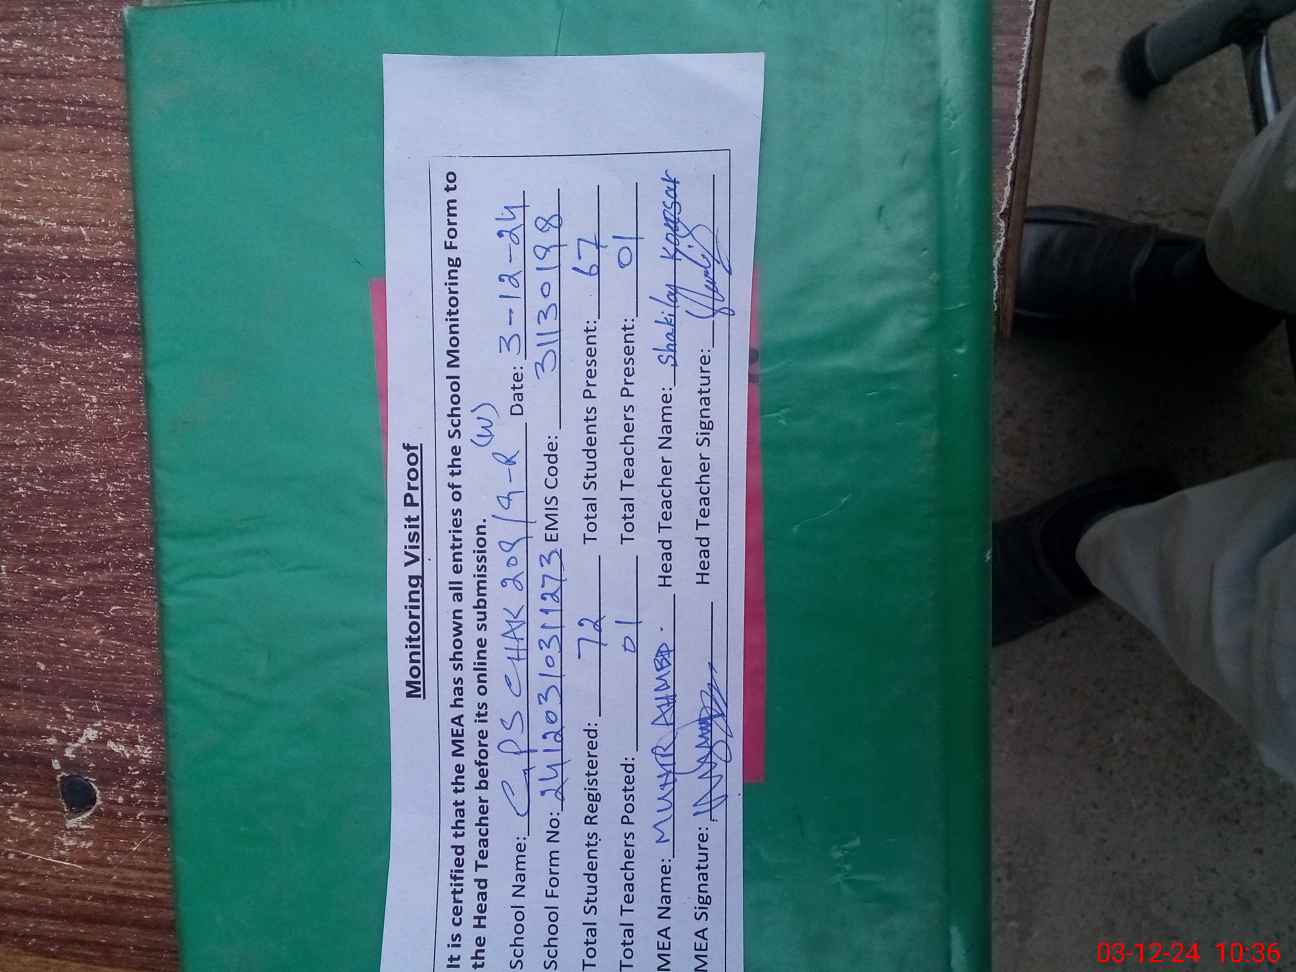 Monitoring Visit Proof
It is certified that the MEA has shown all entries of the School Monitoring Form to
the Head Teacher before its online submission.
School Name: GPS CHAK 209/9-R (W) Date: 3-12-24
School Form No: 24120310311273 EMIS Code: 31130198
Total Students Registered: 72 Total Students Present: 67
Total Teachers Posted: 01 Total Teachers Present: 01
MEA Name: AHMED. Head Teacher Name: Shakilay Kousar
MEA Signature: Head Teacher Signature:
03-12-24 10:36